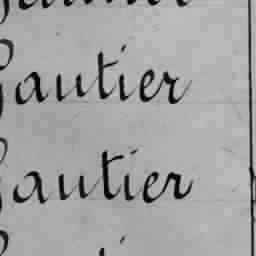 Gautier
Gautier